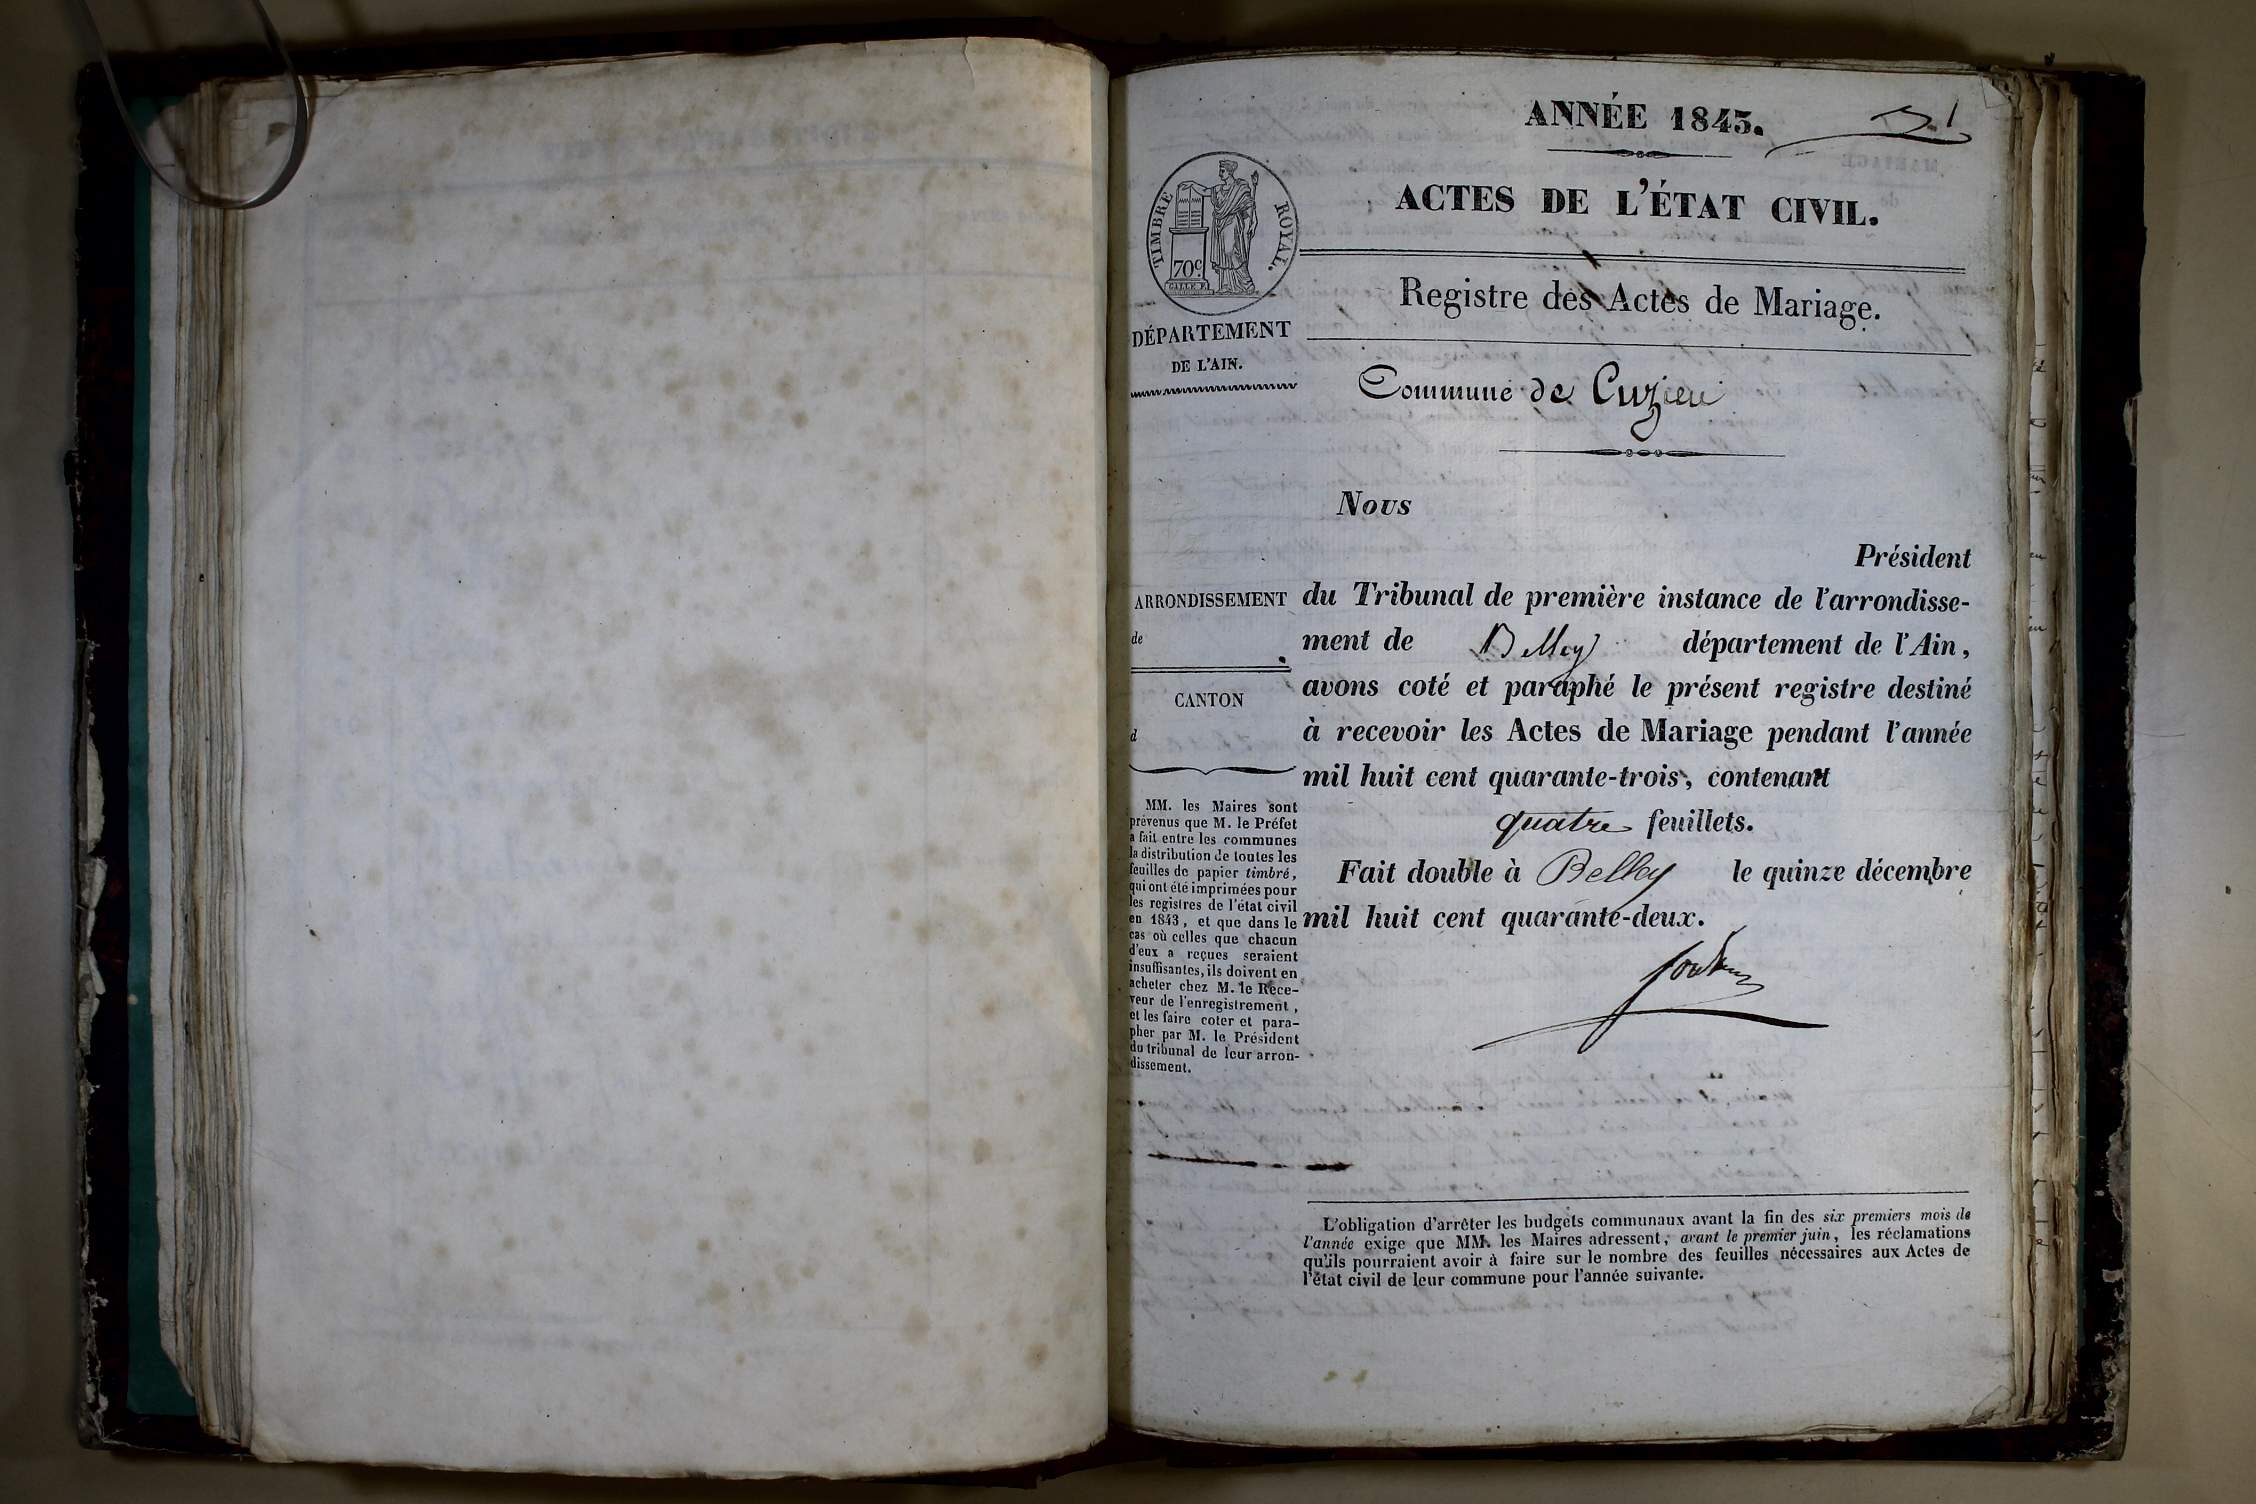 ANNÉE 1843.
1
ACTES DE L'ÉTAT CIVIL.
TIMBRE ROYAL.
70c
Registre des Actes de Mariage.
DÉPARTEMENT
DE L'AIN.
Commune de Cuzieu
Nous
Président
ARRONDISSEMENT
de
du Tribunal de première instance de l'arrondisse-
ment de Belley département de l'Ain,
avons coté et paraphé le présent registre destiné
à recevoir les Actes de Mariage pendant l'année
mil huit cent quarante-trois, contenant
quatre feuillets.
Fait double à Belley le quinze décembre
mil huit cent quarante-deux.
CANTON
d
MM. les Maires sont
prévenus que M. le Préfet
a fait entre les communes
la distribution de toutes les
feuilles de papier timbré,
qui ont été imprimées pour
les registres de l'état civil
en 1843, et que dans le
cas où celles que chacun
d'eux a reçues seraient
insuffisantes, ils doivent en
acheter chez M. le Rece-
veur de l'enregistrement,
et les faire coter et para-
pher par M. le Président
du tribunal de leur arron-
dissement.
L'obligation d'arrêter les budgets communaux avant la fin des six premiers mois de
l'année exige que MM. les Maires adressent, avant le premier juin, les réclamations
qu'ils pourraient avoir à faire sur le nombre des feuilles nécessaires aux Actes de
l'état civil de leur commune pour l'année suivante.